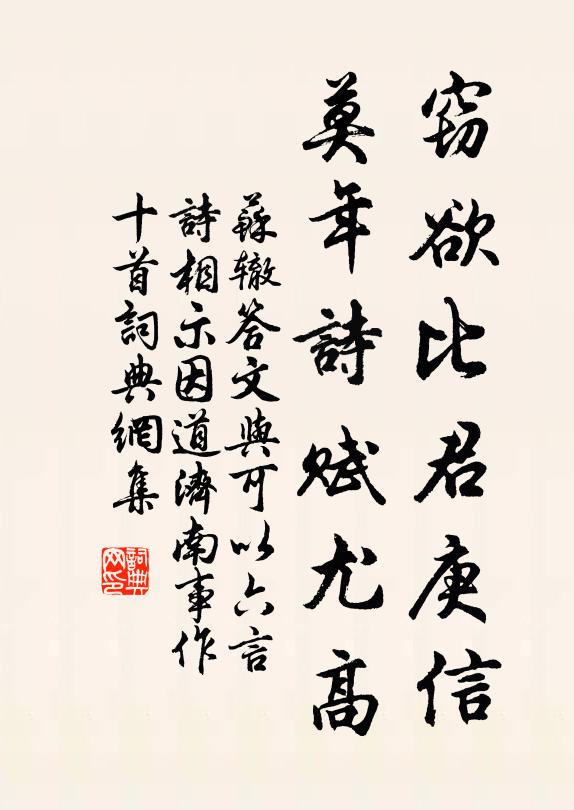 窃欲比君庾信
莫年詩賦尤高
蘇辙答文與可以六言
詩相示因道濟南事作
十首詞典網集
詞典網印